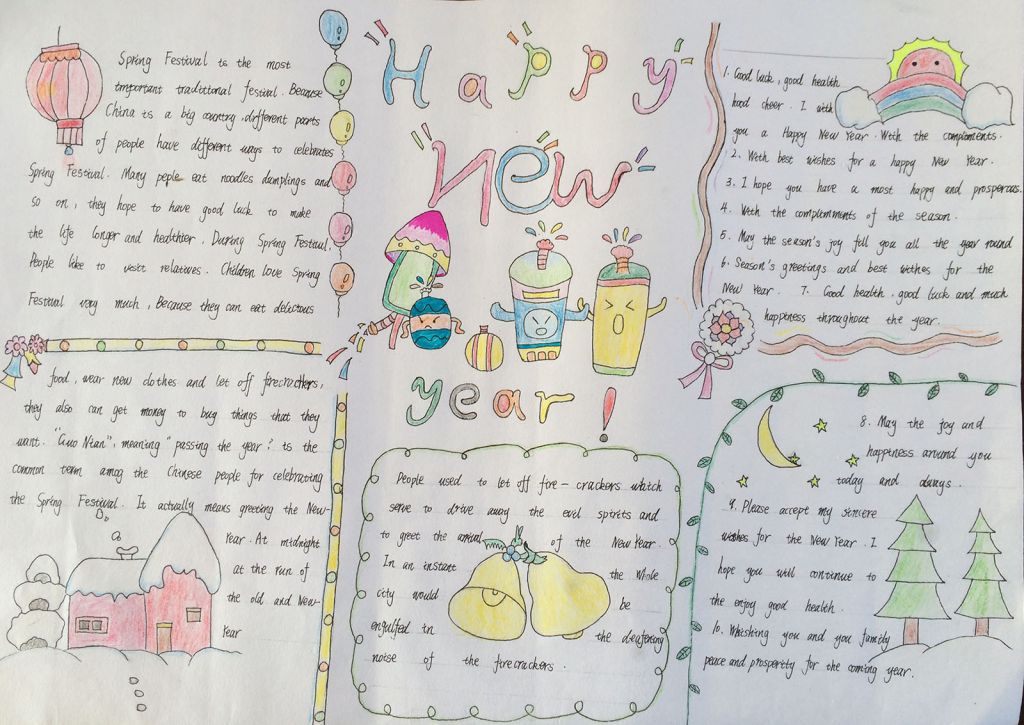 Happy
new
year!
Spring Festival is the most
important traditional festival. Because
China is a big country, different parts
of people have different ways to celebrates
Spring Festival. Many peple eat noodles dumplings and
so on, they hope to have good luck to make
the life longer and healthier. During Spring Festival,
People like to visit relatives. Children love Spring
Festival very much, Because they can eat delicious
food, wear new clothes and let off firecrackers,
they also can get money to buy things that they
want. "Guo Nian", meaning "passing the year". is the
common term amog the Chinese people for celebrating
the Spring Festival. It actually means greeting the New-
Year. At midnight
at the run of
the old and New-
Year
People used to let off fire-crackers watch
serve to drive away the evil spirits and
to greet the arrival of the New Year.
In an instant the Whole
city would be
engulfed in the deafening
noise of the firecrackers.
1. Good luck, good health,
hood cheer. I wish
you a Happy New Year. With the compliments.
2. With best wishes for a happy New Year.
3. I hope you have a most happy and prosperous.
4. With the complnments of the season.
5. May the season's joy fill you all the year round
6. Season's greetings and best withes for the
New Year. 7. Good health, good luck and much
happiness throughout the year.
8. May the joy and
happiness around you
today and always.
9. Please accept my sincere
wishes for the New Year. I
hope you will continue to
the enjoy good health.
10. Whishing you and you family
peace and prosperity for the coming year.